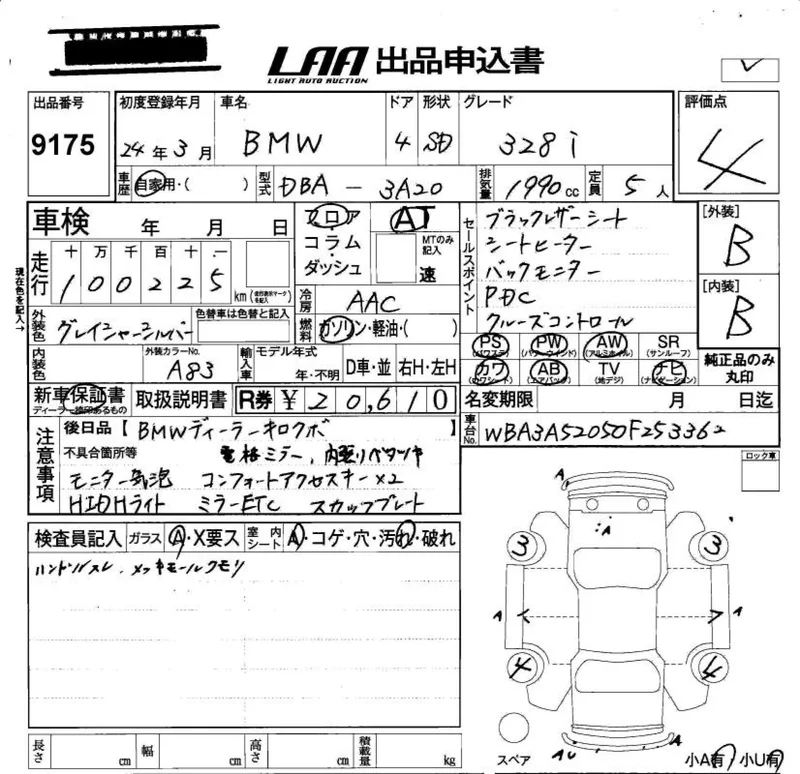 LAA 出品申込書
LIGHT AUTO AUCTION
出品番号 初度登録年月 車名 ドア 形状 グレード 評価点
9175 24年3月 BMW 4 SD 328i 4
車歴 自家用・( ) 型式 DBA-3A20 排気量 1990cc 定員 5人
車検 年 月 日 フロア AT セールスポイント ブラックレザーシート [外装]
コラム MTのみ記入 シートヒーター B
ダッシュ 速 バックモニター
走行 十 万 千 百 十 一 PDC [内装]
100225 km (走行表示マークを記入) 冷房 AAC クルーズコントロール B
現在色を記入→
外装色 グレイシャーシルバー 色替車は色替と記入 燃料 ガソリン・軽油・( )
PS (パワステ) PW (パワーウインド) AW (アルミホイル) SR (サンルーフ) 純正品のみ丸印
内装色 外装カラーNo. A83 輸入車 モデル年式 年・不明 D車・並 右H・左H
カワ (カワシート) AB (エアバッグ) TV (地デジ) ナビ (ナビゲーション)
新車保証書 ディーラー捺印あるもの 取扱説明書 R券 ¥ 20,610 名変期限 月 日迄
注意事項 後日品【BMWディーラーキロクボ 】 車台No. WBA3A52050F253362
不具合箇所等 電格ミラー、内張りベタツキ ロック車
モニター気泡 コンフォートアクセスキー×2
HIDHライト ミラーETC スカッフプレート
検査員記入 ガラス A・X要ス 室内シート A・コゲ・穴・汚れ・破れ
ハンドルスレ、メッキモールクモリ
A
A
3 3
A A
4 4
スペア A U A 小A有 小U有
長さ cm 幅 cm 高さ cm 積載量 kg